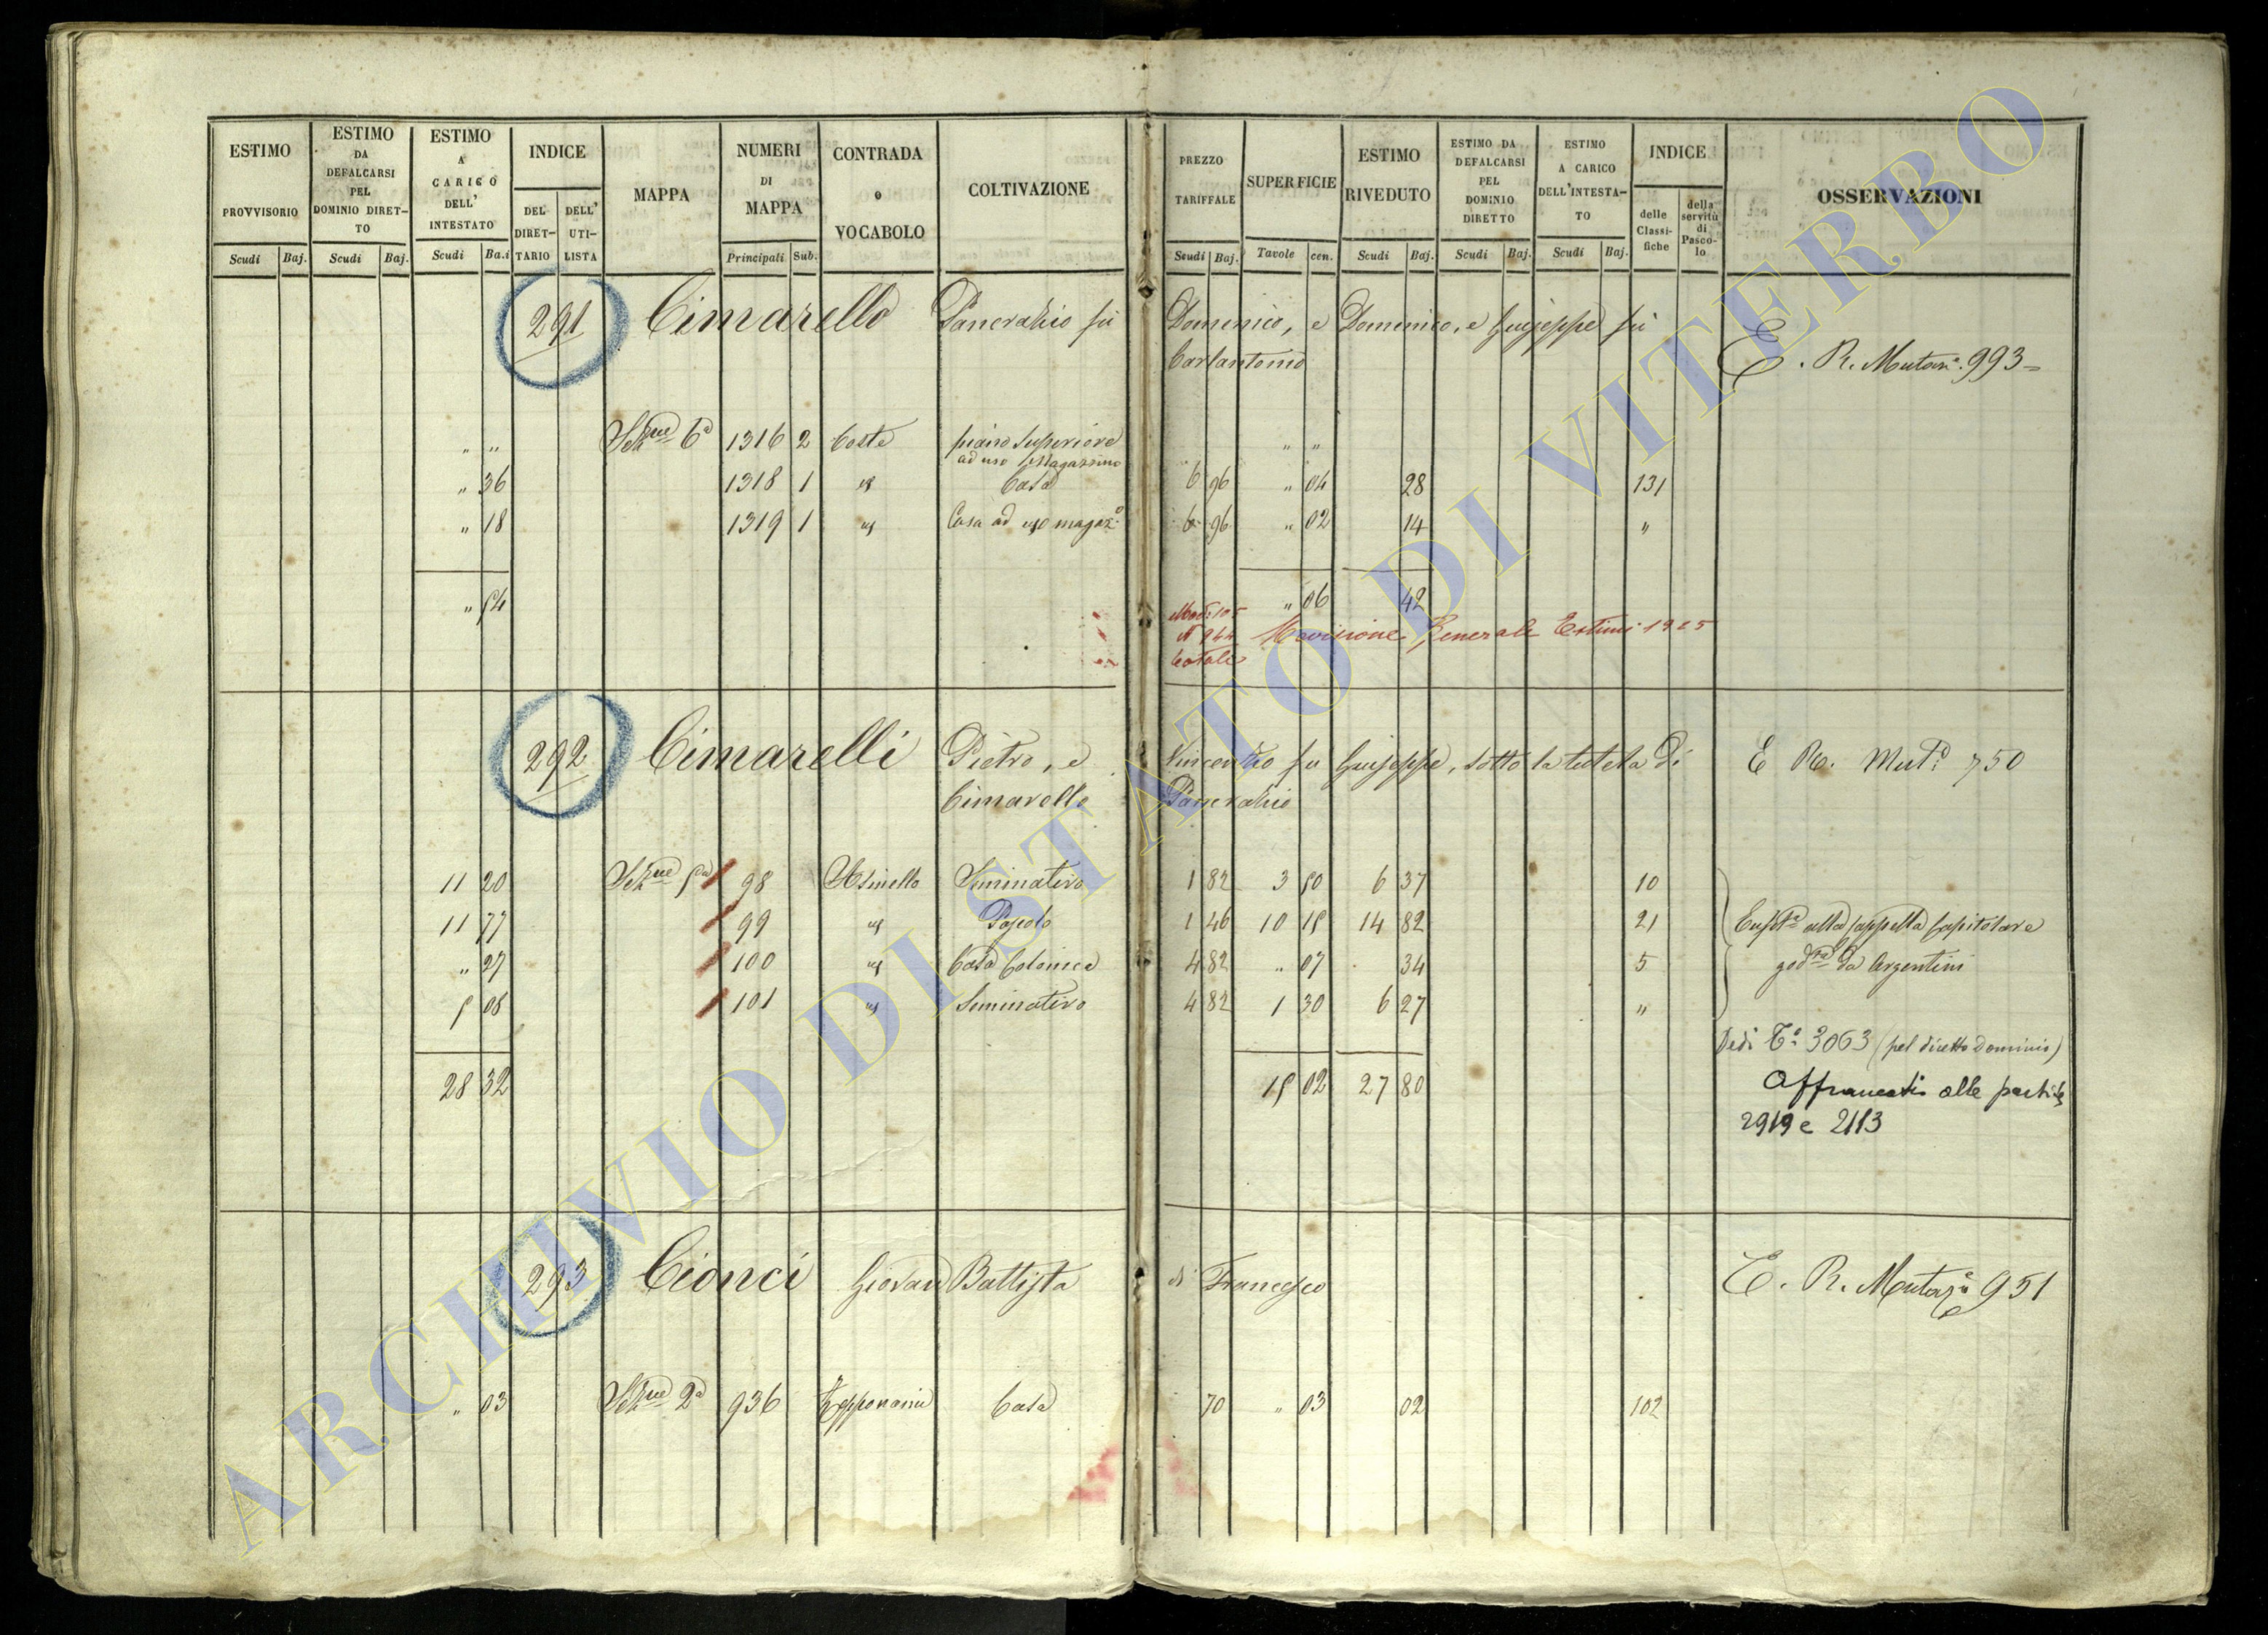 ESTIMO PROVVISORIO Scudi Baj.
ESTIMO DA DEFALCARSI PEL DOMINIO DIRETTO Scudi Baj.
ESTIMO A CARICO DELL' INTESTATO Scudi Ba.i
INDICE DEL DIRETTARIO DELL' UTILISTA
MAPPA
NUMERI DI MAPPA Principali Sub.
CONTRADA o VOCABOLO
COLTIVAZIONE
PREZZO TARIFFALE Scudi Baj.
SUPERFICIE Tavole cen.
ESTIMO RIVEDUTO Scudi Baj.
ESTIMO DA DEFALCARSI PEL DOMINIO DIRETTO Scudi Baj.
ESTIMO A CARICO DELL'INTESTATO Scudi Baj.
INDICE delle Classifiche della servitù di Pascolo
OSSERVAZIONI
291 Cimarello Pancrazio fu Domenico, e Domenico, e Giuseppe fu
Carlantonio
E. R. Mutazi. 993=
" " Sezne 6a 1316 2 Coste piano superiore " "
ad uso Magazzino
" 36 1318 1 id Casa 6 96 " 04 28 131
" 18 1319 1 id Casa ad uso magazo 6 96 " 02 14 "
" 54 " 06 42
Mod: 105
N 244 Revisione Generale Estimi 1925
Catale
292 Cimarelli Pietro, e Vincenzo fu Giuseppe, sotto la tutela di E R. Muti 750
Cimarello Pancrazio
11 20 Sezne 5a 98 Asinello Seminativo 1 82 3 50 6 37 10
11 77 99 id Pascolo 1 46 10 15 14 82 21 alla Cappella Capitolare
" 27 100 id Casa Colonica 4 82 " 07 34 5 da Argentini
5 08 101 id Seminativo 4 82 1 30 6 27 "
Vedi To 3063 (pel diretto Dominio)
28 32 15 02 27 80 Affrancati alle partite
2919 e 2113
293 Cionci Giovan Battista di Francesco E. R. Mutaz. 951
" 03 Sezne 2a 936 Casa 70 " 03 02 102
ARCHIVIO DI STATO DI VITERBO